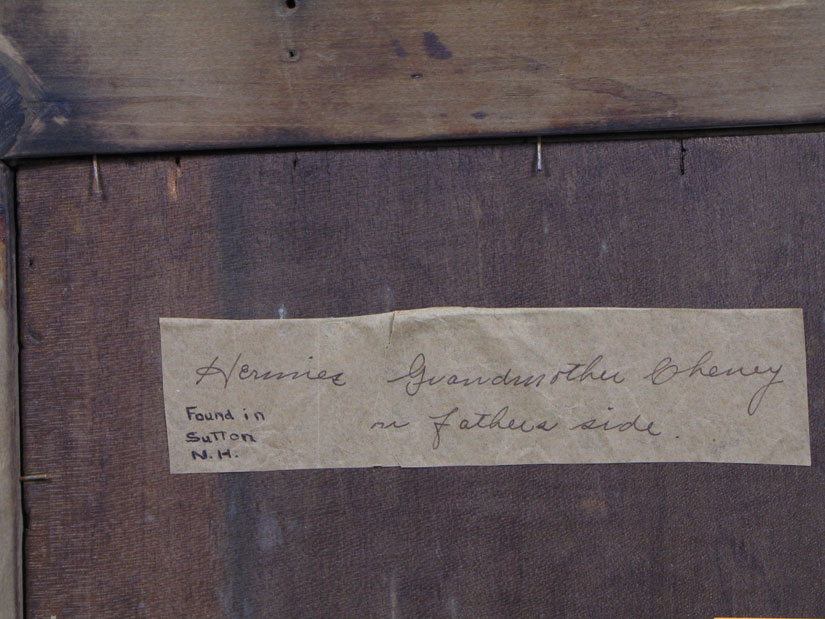 Hermies Grandmother Cheney
on fathers side.
Found in
Sutton
N.H.